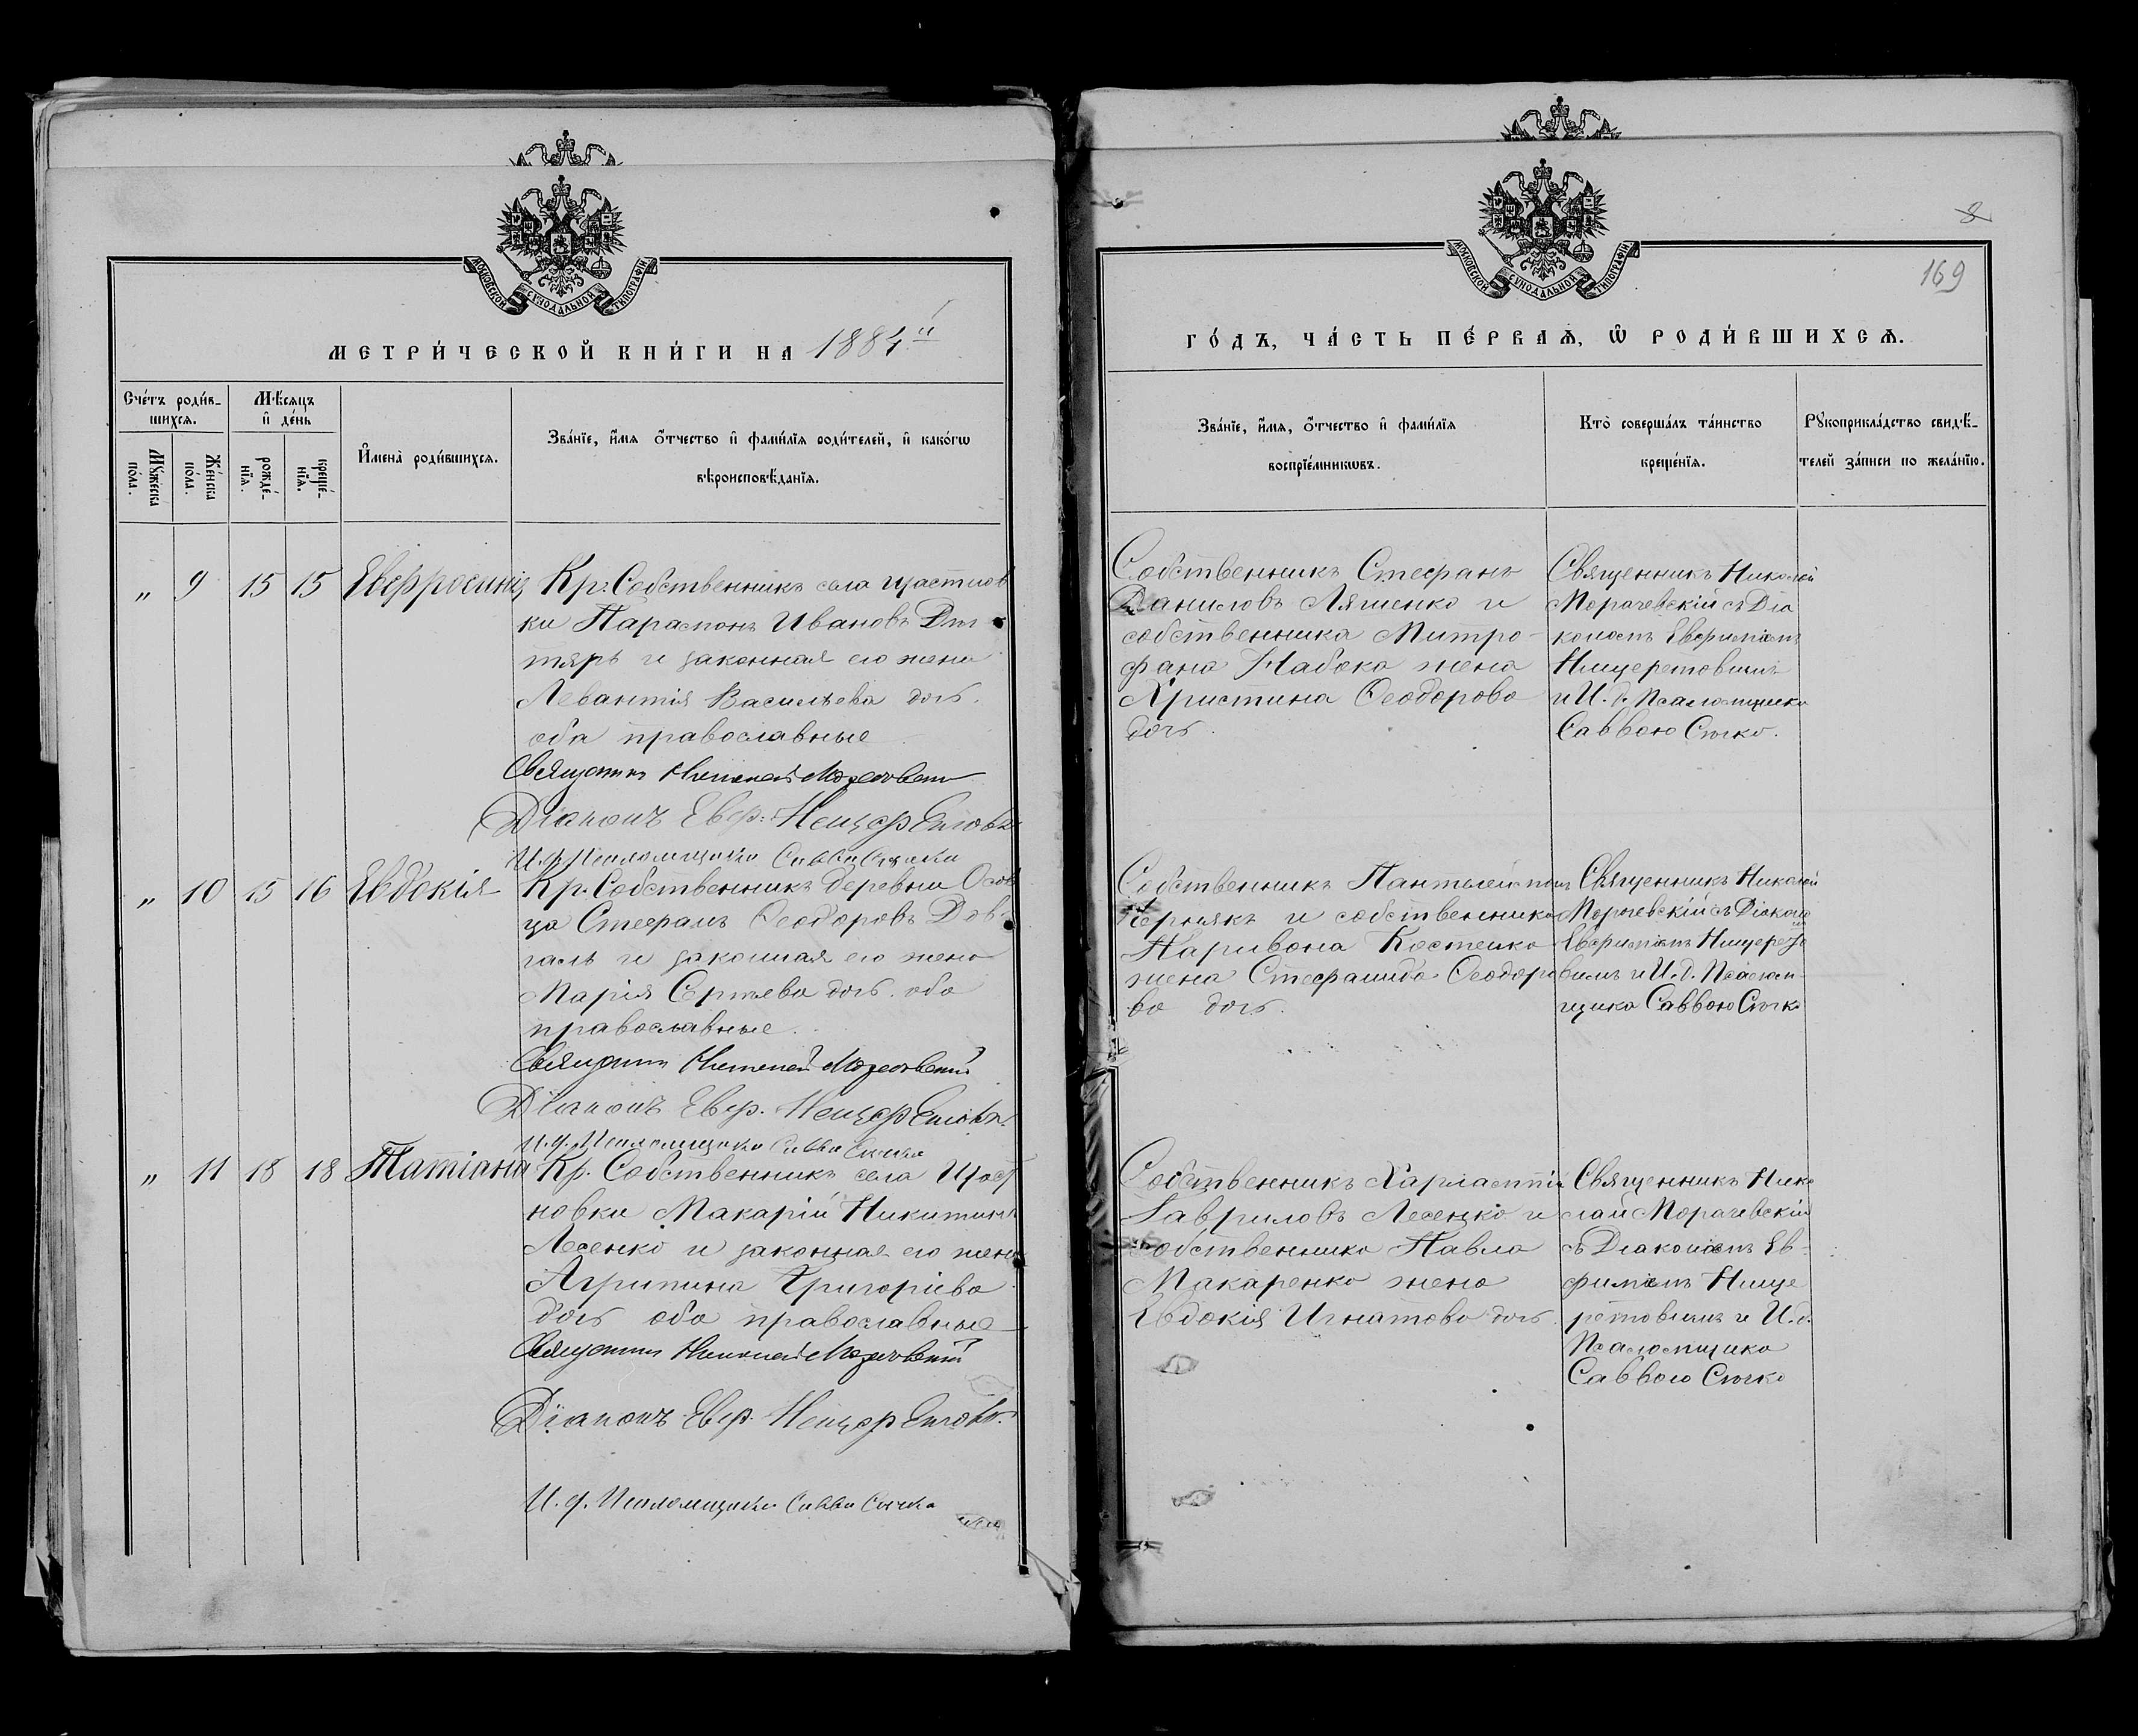 МОСКОВСКОЙ СѴНОДАЛЬНОЙ ТИПОГРАФІИ
МЕТРИ́ЧЕСКОЙ КНИ́ГИ НА 1884й
Сче́тъ роди́в-
шихсѧ.
Мꙋ́жеска по́ла.
Же́нска по́ла.
Мѣ́сѧцъ
и҆ де́нь
рожде́-
нїѧ.
креще́-
нїѧ.
И҆мена̀ роди́вшихсѧ.
Зва́нїе, и҆́мѧ ѻ҆́тчество и҆ фами́лїѧ роди́телей, и҆ како́гѡ
вѣроисповѣ́данїѧ.
„ 9 15 15 Евфросинія
Кр: Собственникъ села
ки Парамонъ Ивановъ
и законная его жена
Васильева дочь.
оба православные
Священникъ Николай Морачевскій
Діаконъ Евф:
И.д. Псаломщика Савва Сычко
„ 10 15 16 Евдокія
Кр. Собственникъ деревни Осов
ца Стефанъ Ѳеодоровъ Дов-
галь и законная его жена
Марія Сергѣева дочь. оба
православные.
Священникъ Николай Морачевскій
Діаконъ Евф.
И.д. Псаломщика Савва Сычко
„ 11 18 18 Татіана
Кр. Собственникъ села
новки Макарій Никитинъ
Лесенко и законная его жена
Агрипина Григоріева
дочь оба православные
Священникъ Николай Морачевскій
Діаконъ Евф.
И.д. Псаломщика Савва Сычко
МОСКОВСКОЙ СѴНОДАЛЬНОЙ ТИПОГРАФІИ
8
169
ГО́ДЪ, ЧА́СТЬ ПЕ́РВАѦ, Ѡ҆ РОДИ́ВШИХСѦ.
Зва́нїе, и҆́мѧ, ѻ҆́тчество и҆ фами́лїѧ
воспрїе́мникѡвъ.
Кто̀ соверша́лъ та́инство
креще́нїѧ.
Рꙋкоприкла́дство свидѣ́-
телей за́писи по жела́нїю.
Собственникъ Стефанъ
Даниловъ Ляшенко и
собственника Митро-
фана Набока жена
Христина Ѳеодорова
дочь.
Священникъ Николай
Морачевскій съ Діа
кономъ Евфиміемъ
и И. д. Псаломщика
Саввою Сычко.
Собственникъ Пантелеймонъ
и собственника
Харивона Костенко
жена Стефанида Ѳеодоро
ва дочь.
Священникъ Николай
Морачевскій съ Діакономъ
Евфиміемъ
и И.д. Псалом-
щика Саввою Сычко
Собственникъ Харлампій
Гавриловъ Лесенко и
собственника Павла
Макаренко жена
Евдокія Игнатова дочь.
Священникъ Нико
лай Морачевскій
съ Діакономъ Ев-
фиміемъ
и И.д.
Псаломщика
Саввою Сычко